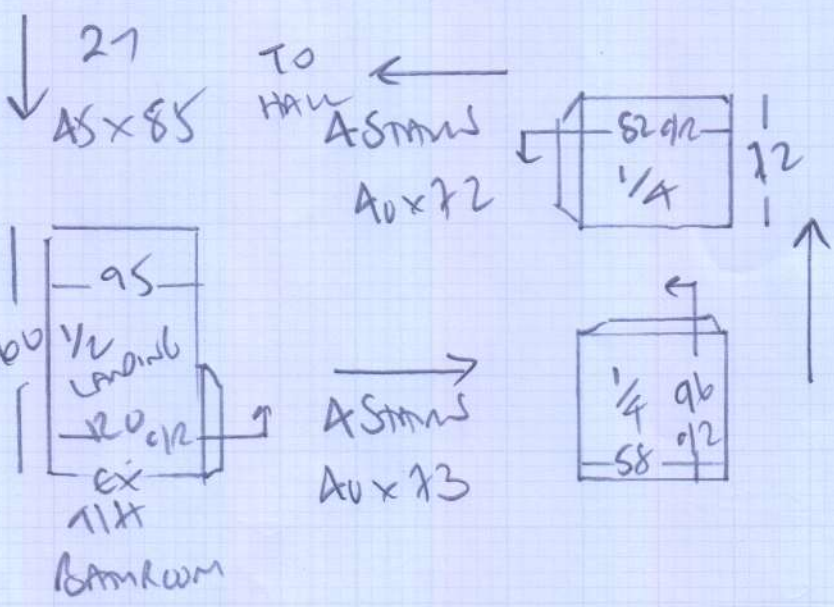 21
45 x 85
TO
HALL
4 STAIRS
40 x 72
82 O/R
1/4
72
95
60
1/2
LANDING
120 O/R
EX
BATHROOM
4 STAIRS
40 x 73
1/4
96
O/R
58